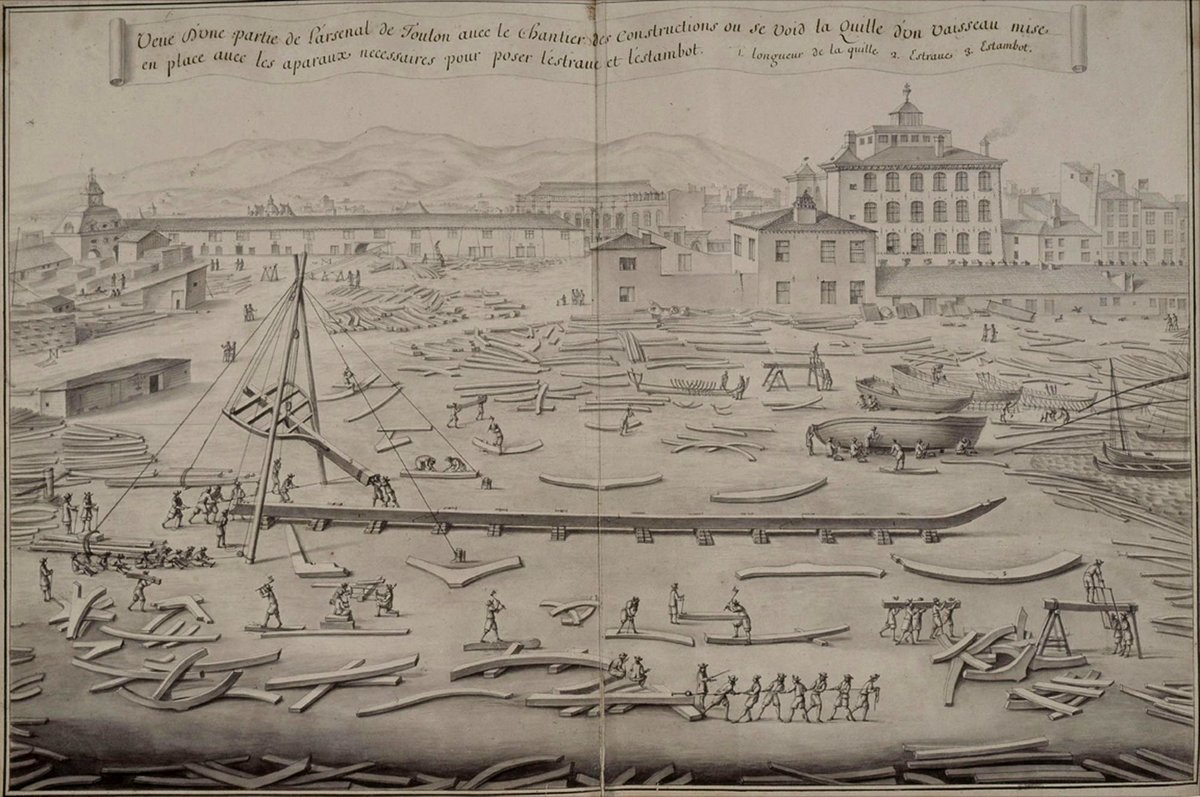 Veue D'une partie de l'arsenal de Toulon avec le Chantier des Constructions ou se void la Quille d'un Vaisseau mise
en place avec les aparaux necessaires pour poser l'estrave et l'estambot. 1. longueur de la quille 2. Estrave 3. Estambot.